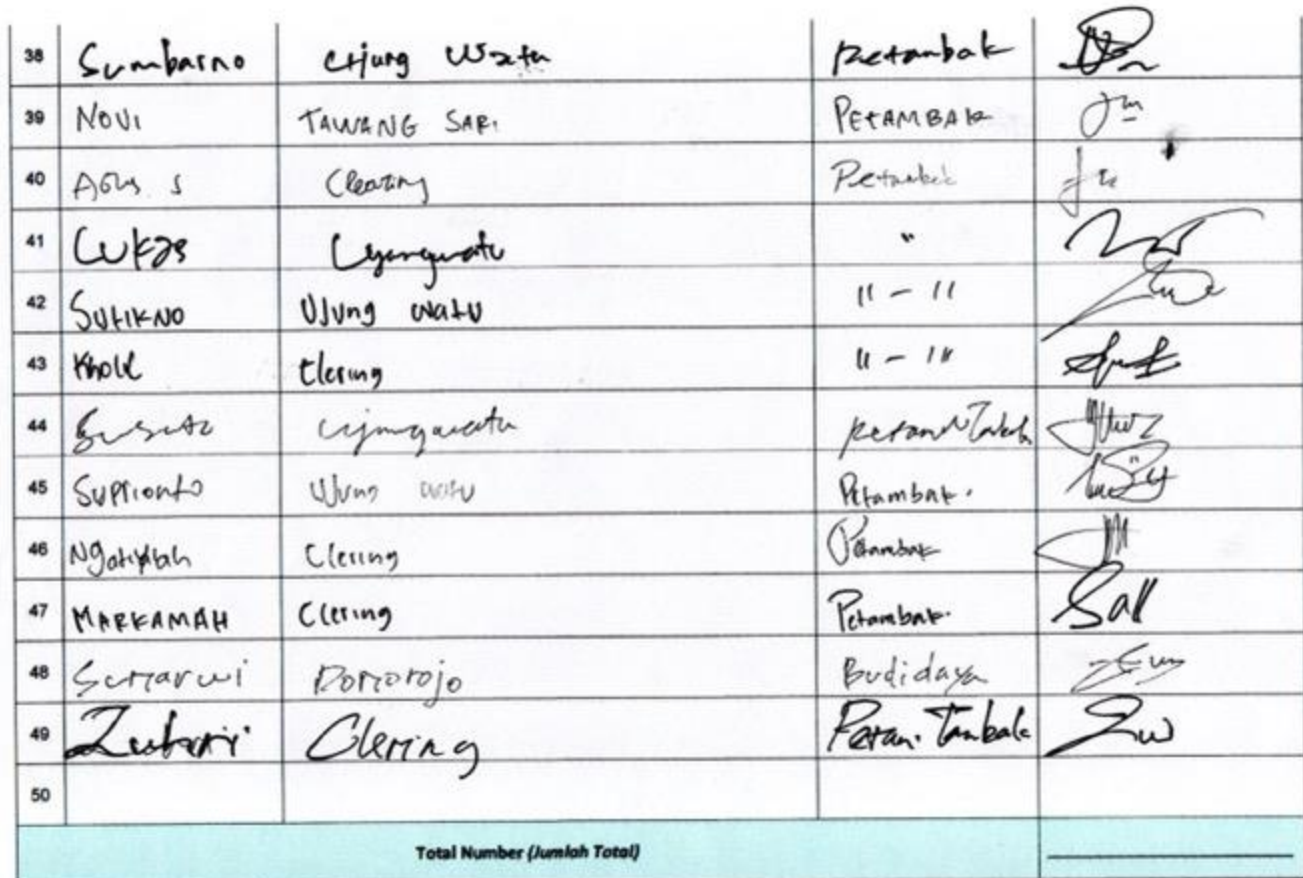 38 Sumbarno Ujung Watu Petambak
39 NOVI TAWANG SARI PETAMBAK
40 AGUS S Clearing Petambak
41 LUKAS Ujungwatu "
42 SUTIKNO UJUNG WATU 11 - 11
43 Kholil Clering 11 - 11
44 Susanto Ujungwatu Petani Tambak
45 SUPRIONTO UJUNG WATU Petambak.
46 Ngatiyah Clering Petambak
47 MARKAMAH Clering Petambak.
48 Sumarwi Donorojo Budidaya
49 Zuhri Clering Petani Tambak
50
Total Number (Jumlah Total)